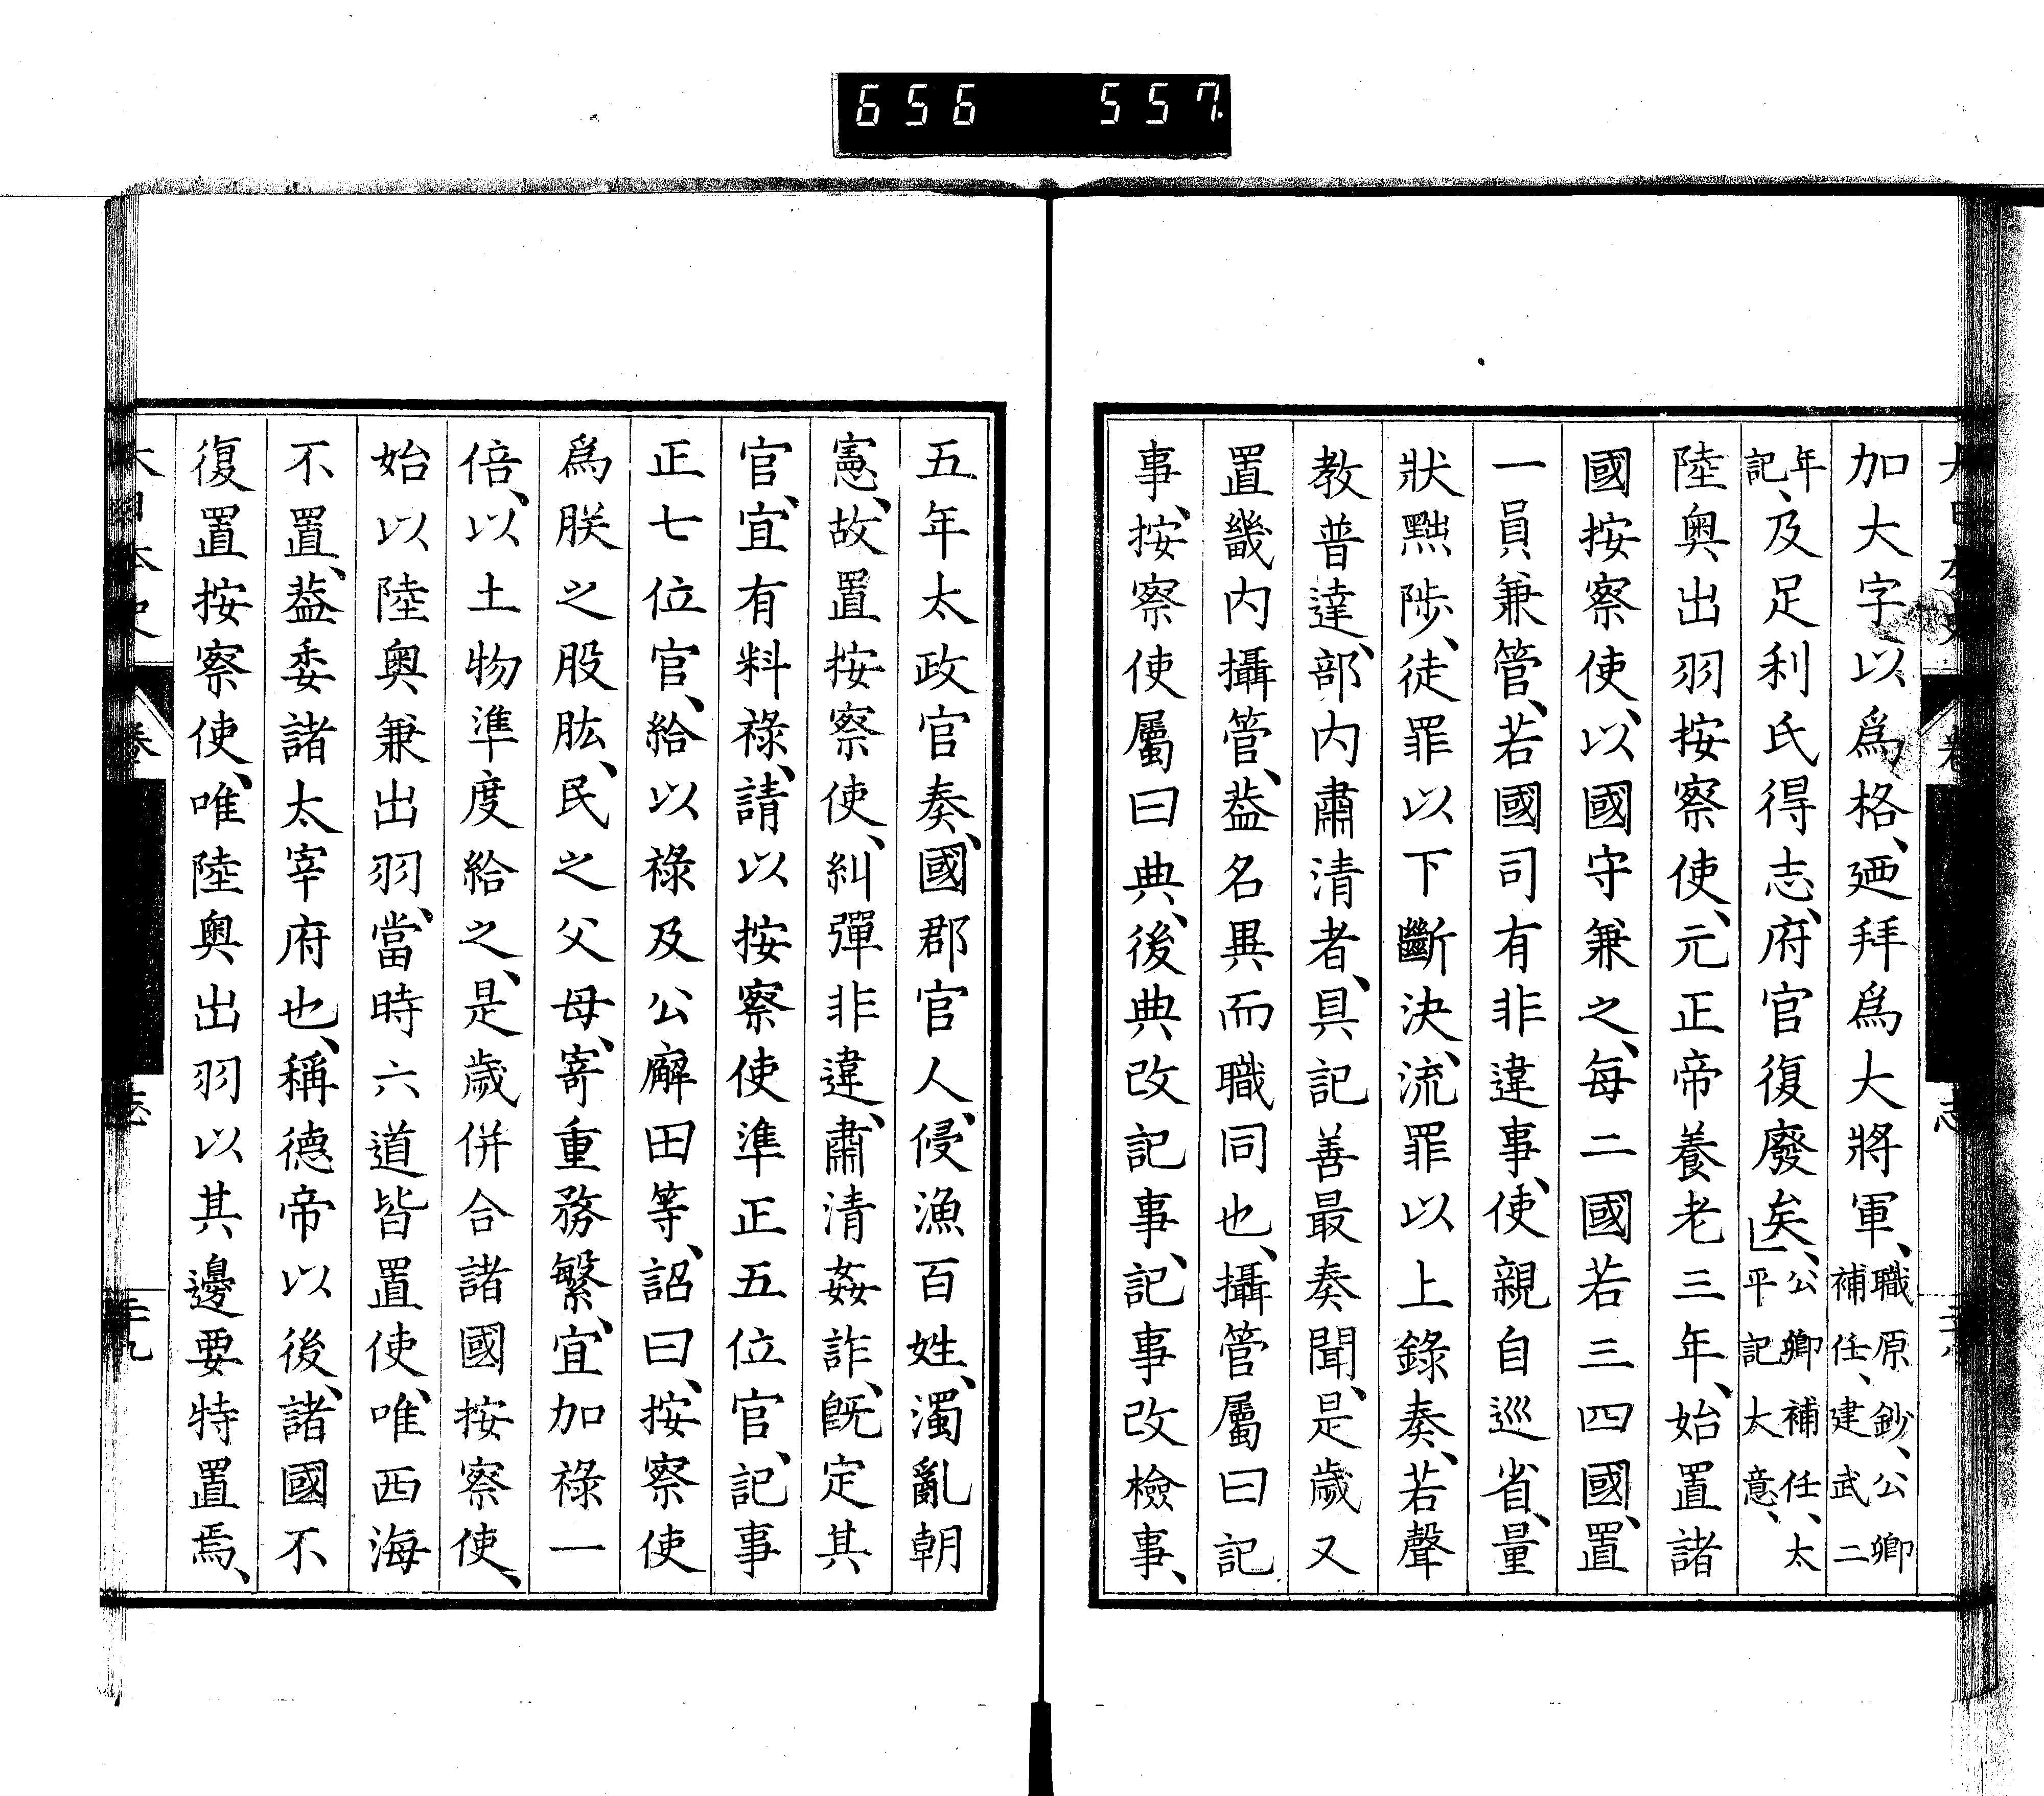 656 557.
加大字以爲格、廼拜爲大將軍、職原鈔、公卿補任、建武二
年記、及足利氏得志、府官復廢矣、」公卿補任、太平記大意、
陸奧出羽按察使、元正帝養老三年、始置諸
國按察使、以國守兼之、每二國若三四國、置
一員兼管、若國司有非違事、使親自巡省、量
狀黜陟、徒罪以下斷決、流罪以上錄奏、若聲
教普達、部內肅清者、具記善最奏聞、是歲又
置畿內攝管、葢名異而職同也、攝管屬曰記
事、按察使屬曰典、後典改記事、記事改檢事、
五年太政官奏、國郡官人、侵漁百姓、濁亂朝
憲、故置按察使、糾彈非違、肅清姦詐、旣定其
官、宜有料祿、請以按察使準正五位官、記事
正七位官、給以祿及公廨田等、詔曰、按察使
爲朕之股肱、民之父母、寄重務繁、宜加祿一
倍、以土物準度給之、是歲併合諸國按察使、
始以陸奧兼出羽、當時六道皆置使、唯西海
不置、葢委諸太宰府也、稱德帝以後、諸國不
復置按察使、唯陸奧出羽以其邊要特置焉、
大日本史 卷 志